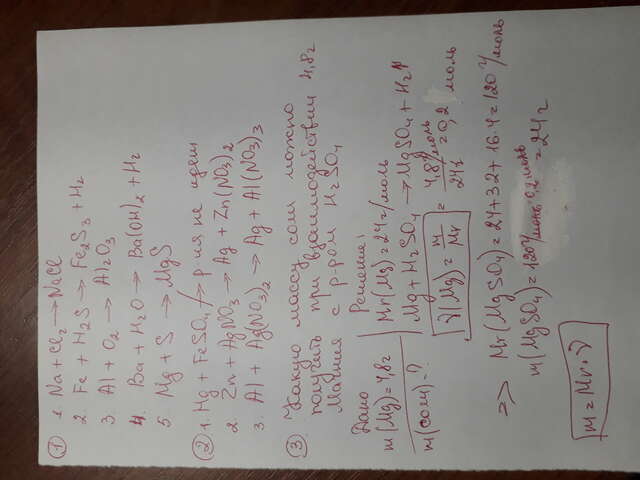 ① 1. Na + Cl₂ → NaCl
2. Fe + H₂S → Fe₂S₃ + H₂
3. Al + O₂ → Al₂O₃
4. Ba + H₂O → Ba(OH)₂ + H₂
5. Mg + S → MgS
② 1. Hg + FeSO₄ ↛ р-ия не идет
2. Zn + AgNO₃ → Ag + Zn(NO₃)₂
3. Al + Ag(NO₃)₂ → Ag + Al(NO₃)₃
③ Какую массу соли можно
получить при взаимодействии 4,8г
Магния с р-ром H₂SO₄
Дано
m(Mg)=4,8г
m(соли)-?
Решение:
Mr(Mg)=24г/моль
Mg+H₂SO₄ → MgSO₄ + H₂↑
ν(Mg) = m/Mr = 4,8г/моль / 24г = 0,2 моль
=> Mr(MgSO₄) = 24+32+16·4=120 г/моль
m(MgSO₄) = 120г/моль · 0,2 моль = 24г
m = Mr·ν